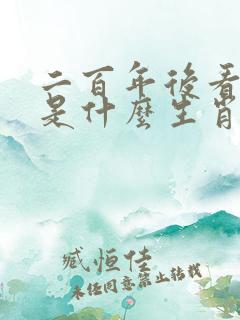 二百年後看
是什麼生肖
臧恒佳
未经同意禁止转载